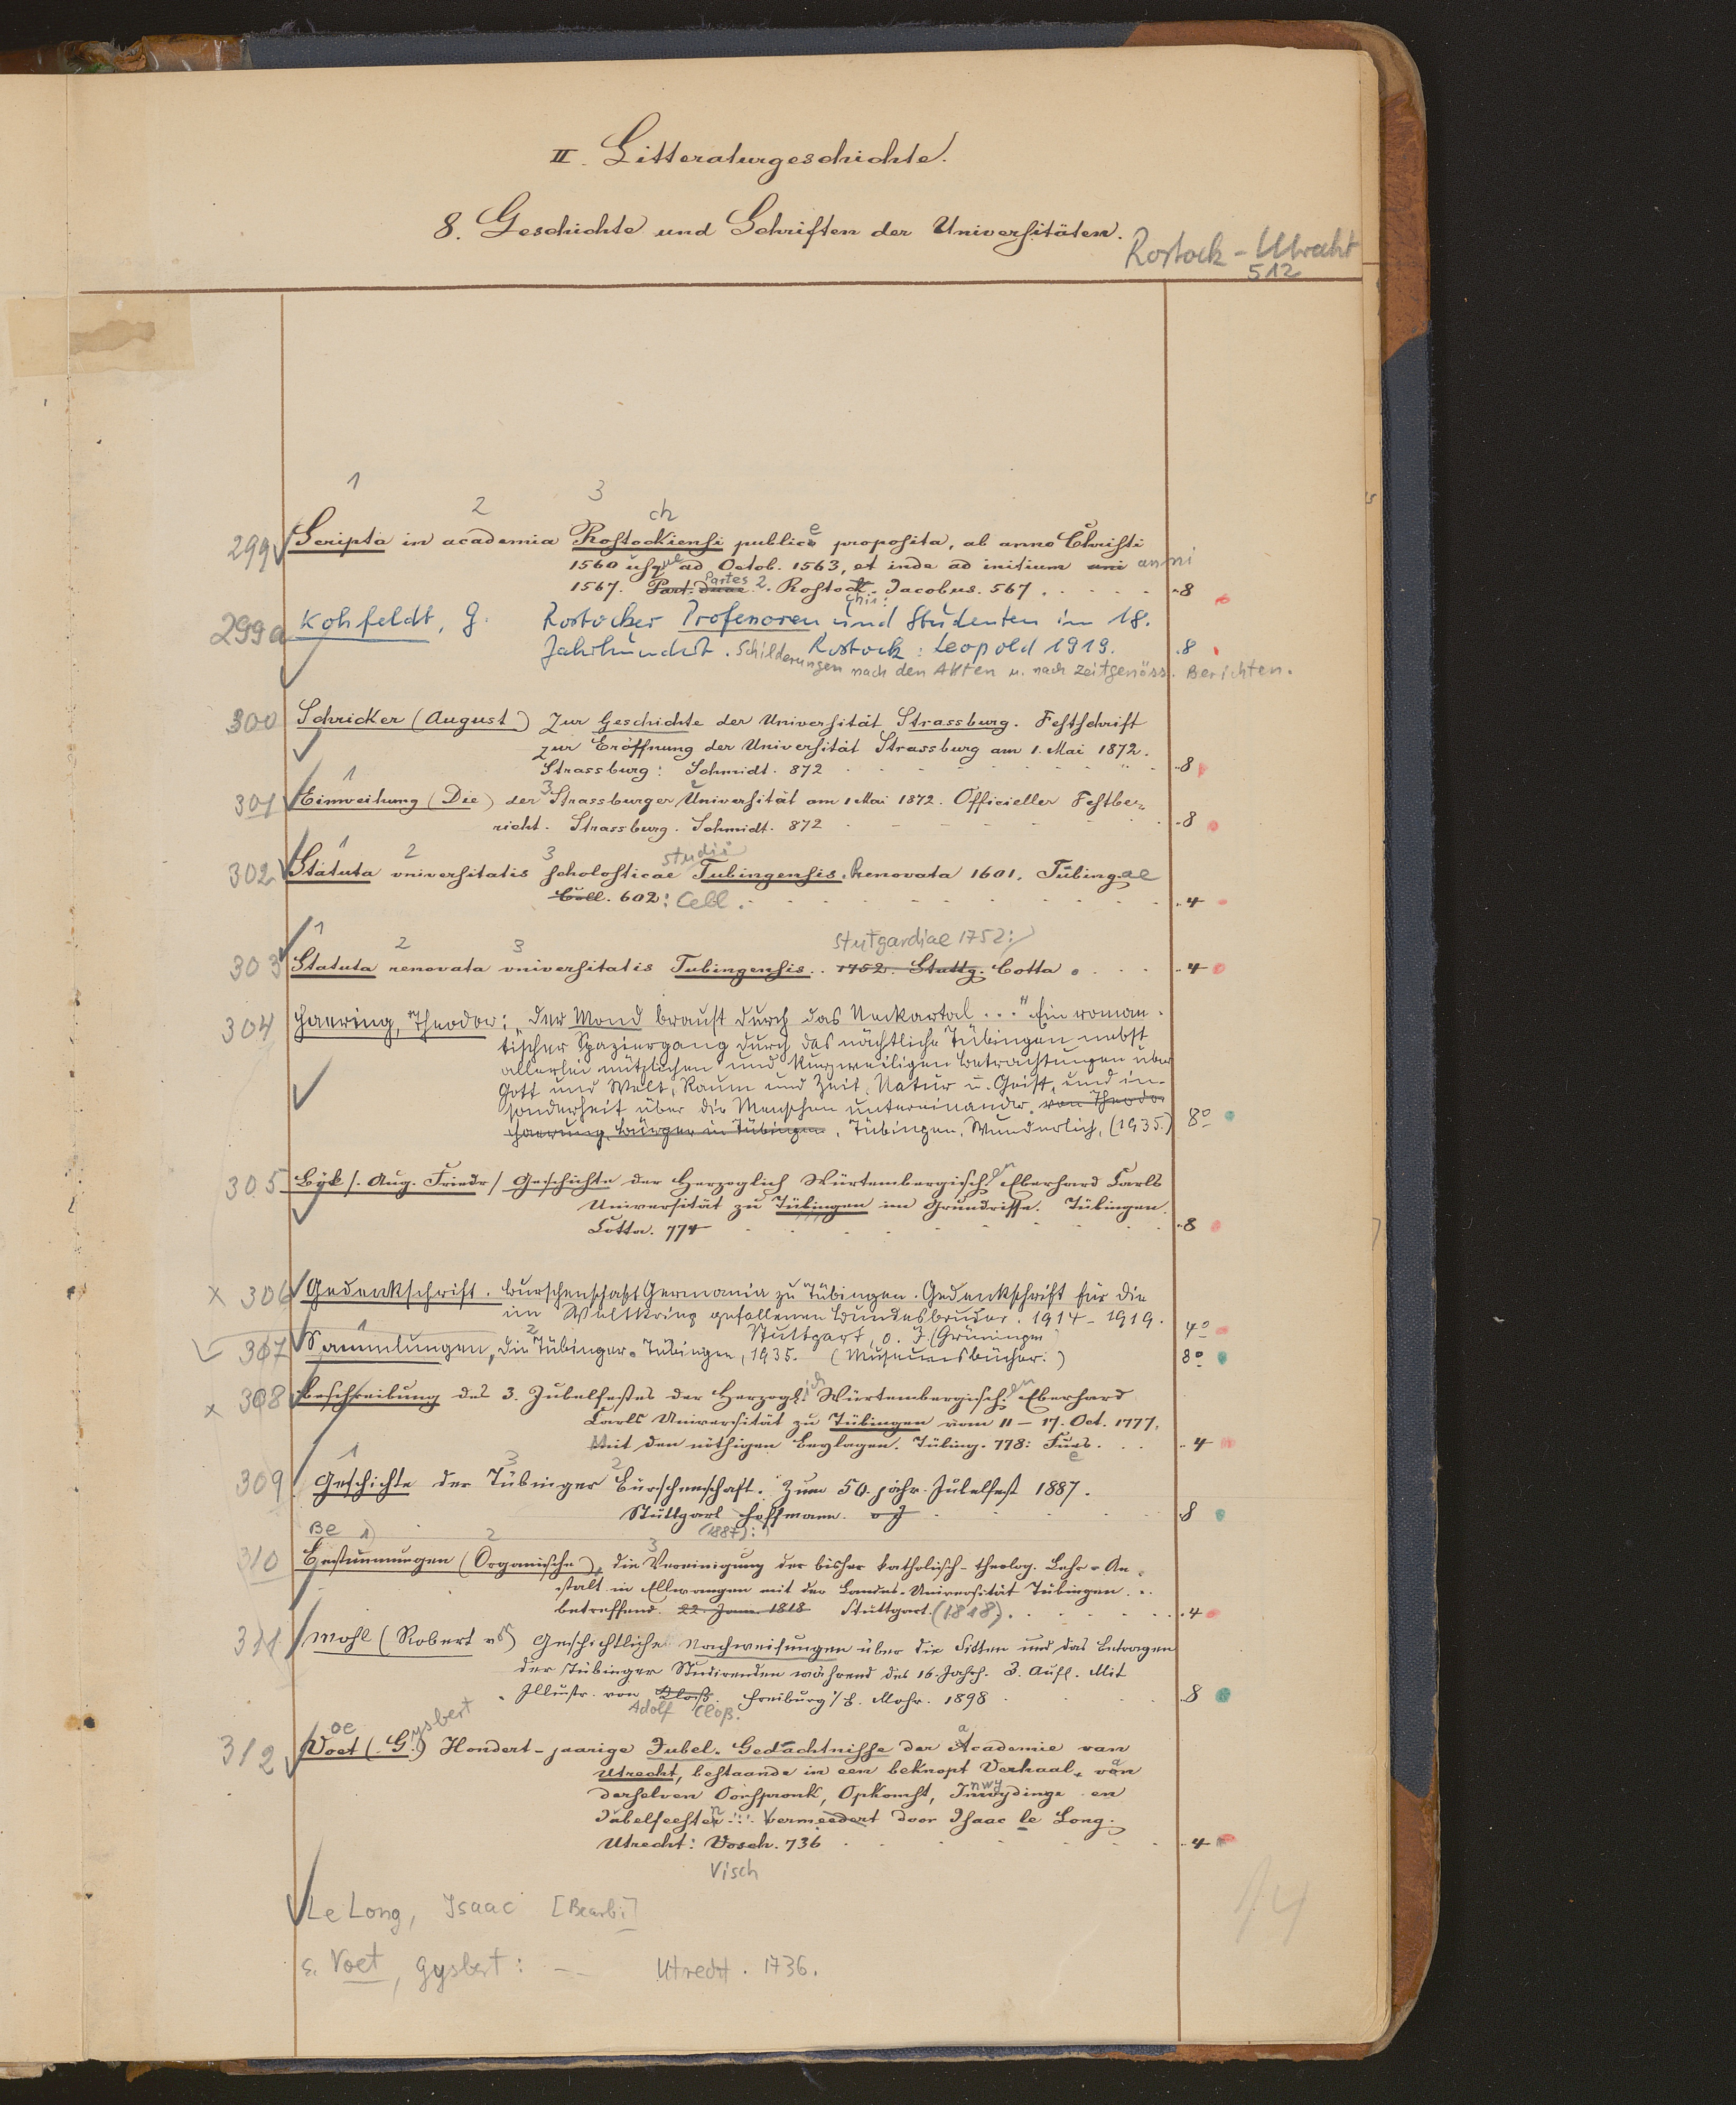 II. Litteraturgeschichte.
8. Geschichte und Schriften der Universitäten.
Rostock - Utrecht
512
1 2 3 ch e
299 Scripta in academia Rostockiensi publice proposita, ab anno Christi
1560 usque ad Octob. 1563, et inde ad initium uni anni
1567. Part. duae Partes 2. Rostock. Jacobus. 567 . . . . . 8
chii:
299a Kohfeldt, G. Rostocker Professoren und Studenten im 18.
Jahrhundert. Rostock: Leopold 1919. 8
Schilderungen nach den Akten u. nach zeitgenöss. Berichten.
300 Schricker (August) Zur Geschichte der Universität Strassburg. Festschrift
zur Eröffnung der Universität Strassburg am 1. Mai 1872.
Strassburg: Schmidt. 872 8
1 3 2
301 Einweihung (Die) der Strassburger Universität am 1 Mai 1872. Officieller Festbe-
richt. Strassburg. Schmidt. 872 8
1 2 3 studii
302 Statuta universitatis scholasticae Tubingensis. Renovata 1601. Tübingae
Cell. 602: Cell. 4
1 2 3 Stutgardiae 1752:
303 Statuta renovata universitatis Tubingensis.. 1752. Stuttg. Cotta . . . 4
304 Haering, Theodor: „Der Mond braust durch das Neckartal . . ." Ein roman-
tischer Spaziergang durch das nächtliche Tübingen nebst
allerlei nützlichen und kurzweiligen Betrachtungen über
Gott und Welt, Raum und Zeit, Natur u. Geist, und in-
sonderheit über die Menschen untereinander. von Theodor
Haering, Bürger in Tübingen. Tübingen, Wunderlich, (1935.) 8°
305 Bök /. Aug. Friedr / Geschichte der Herzoglich Würtembergisch. en Eberhard Carls
Universität zu Tübingen im Grundrisse. Tübingen.
Cotta. 774 8
x 306 Gedenkschrift. Burschenschaft Germania zu Tübingen. Gedenkschrift für die
im Weltkrieg gefallenen Bundesbrüder. 1914-1919.
Stuttgart, o. J. (Grüninger) 4°
1 2
307 Sammlungen, Die Tübinger. Tübingen, 1935. (Museumsbücher.) 8°
x 308 Beschreibung des 3. Jubelfestes der Herzogl. ich Würtembergisch. en Eberhard
Carls Universität zu Tübingen vom 11 - 17. Oct. 1777,
Mit den nöthigen Beylagen. Tübing. 778: Fues. . . . 4
e
1 3 2
309 Geschichte der Tübinger Burschenschaft. Zum 50. jähr. Jubelfest 1887.
Stuttgart Hoffmann. o J 8
(1887):
Be 1) 2 3
310 Bestimmungen (Organische), die Vereinigung der bisher katholisch-theolog. Lehr-An-
stalt in Ellwangen mit der Landes-Universität Tübingen . .
betreffend. 22. Jann. 1818 Stuttgart. (1818) . . . 4
311 Mohl (Robert v.) Geschichtliche Nachweisungen über die Sitten und das Betragen
der Tübinger Studirenden während des 16. Jahrh. 3. Aufl. Mit
Illustr. von Cloß. Freiburg i/B. Mohr. 1898 8
Adolf Closs.
oe ysbert
312 Voet (. G.) Hondert-jaarige Jubel-Gedachtnisse der Academie van
Utrecht, bestaande in een beknopt Verhaal, van
derselven Oorspronk, Opkomst, Inwydinge en
Jubelfeesten ... vermeedert door Isaac le Long.
Utrecht: Vosch. 736 4
Visch
Le Long, Isaac [Bearb.]
s. Voet, Gysbert: -- Utrecht. 1736.
14